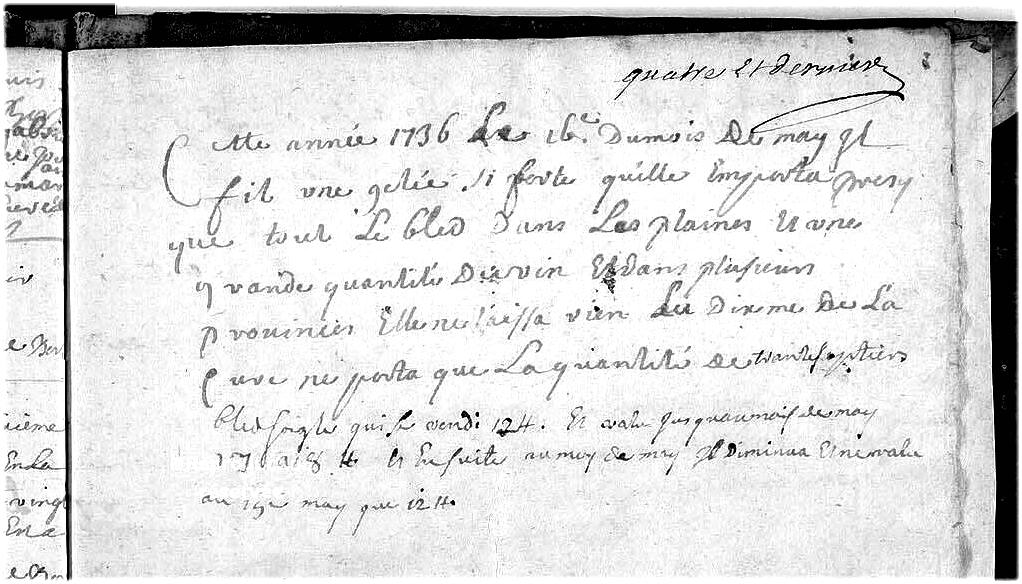 quatre et dernier
Cette année 1736 Le 16e. Dumois De may jl
fit une gelée si forte quille Emporta presq
que tout Le bled Dans Les plaines Et une
grande quantité De vin Et dans plusieurs
provinces Elle ne laissa rien La Dixme De La
Cure ne porta que La quantité de trante septiers
bled seigle qui se vendi 12 ₶. Et valu jusquaumois de may
18 ₶ Et Ensuite au moy de may jl Diminua Et ne valu
au may que 12 ₶.